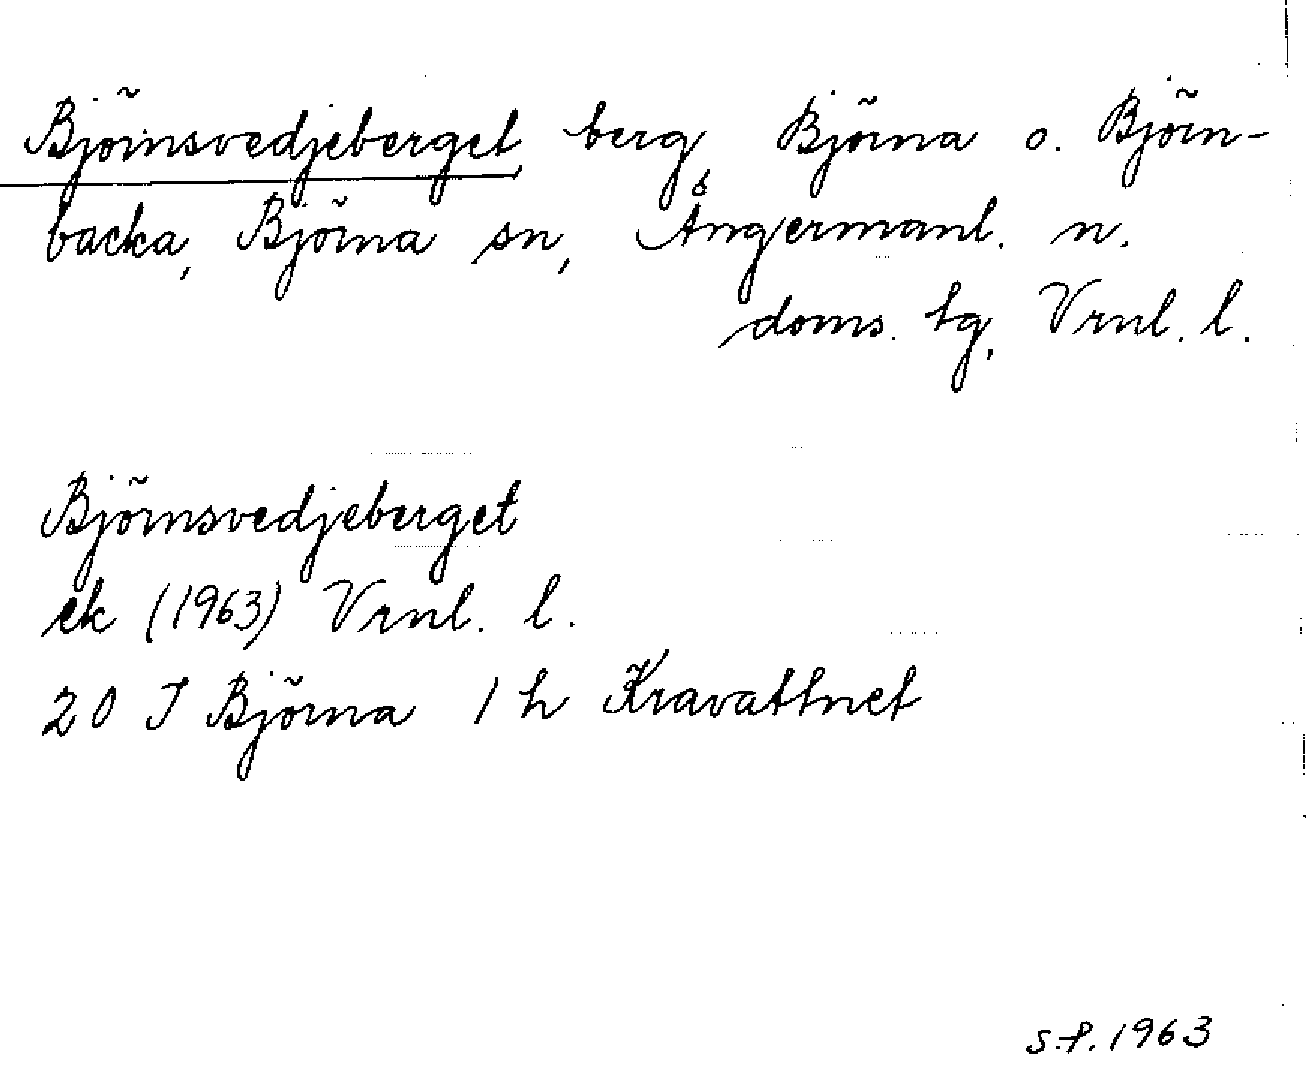 Björnsvedjeberget, berg, Björna o. Björn-
backa, Björna sn, Ångermanl. n.
doms. tg, Vrnl. l.
Björnsvedjeberget
ek (1963) Vrnl. l.
20 I Björna 1 h Kravattnet
S.P. 1963